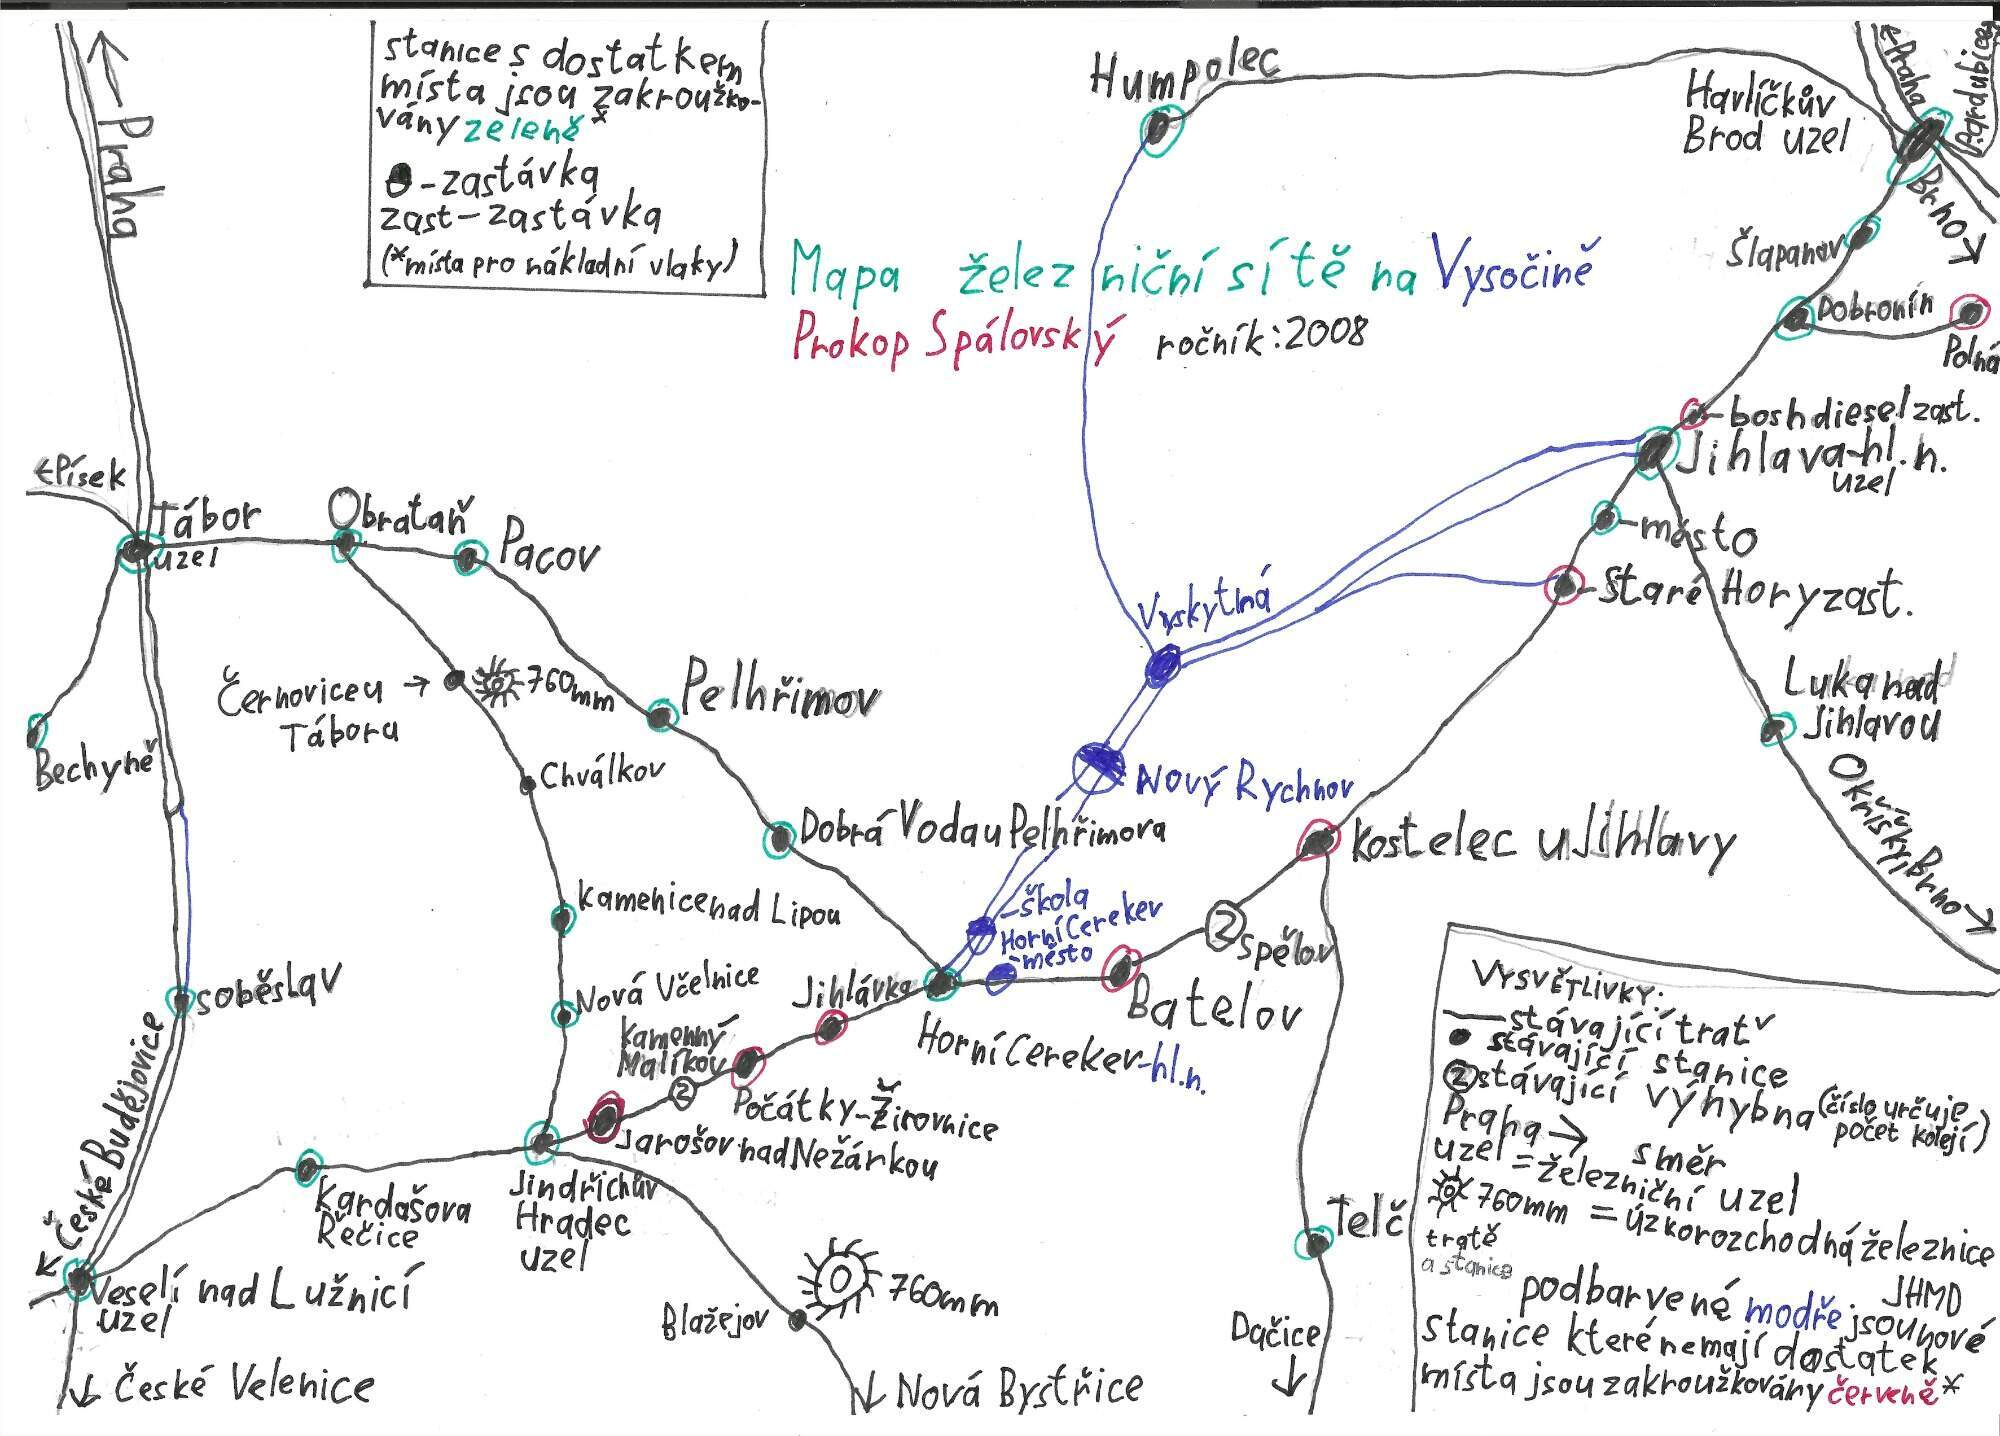 stanice s dostatkem
místa jsou zakroužko-
vány zeleně*
-zastávka
zast-zastávka
(*místa pro nákladní vlaky)
Mapa železniční sítě na Vysočině
Prokop Spálovský ročník:2008
←Praha
Humpolec
Havlíčkův
Brod uzel
←Praha
Pardubice
Brno→
Šlapanov
Dobronín
Polná
-boshdiesel zast.
Jihlava-hl.n.
uzel
-město
-Staré Hory zast.
Luka nad
Jihlavou
Okříšky, Brno→
←Písek
Tábor
uzel
Obrataň
Pacov
Bechyně
Černovice u →
Tábora
760mm
Pelhřimov
Chválkov
Dobrá Voda u Pelhřimova
Vyskytná
Nový Rychnov
Kostelec u Jihlavy
Kamenice nad Lipou
-škola
Horní Cerekev
-město
2
Spělov
Batelov
Soběslav
Nová Včelnice
Jihlávka
Kamenný
Malíkov
2
Horní Cerekev-hl.n.
Počátky-Žirovnice
Jarošov nad Nežárkou
←České Budějovice
Kardašova
Řečice
Jindřichův
Hradec
uzel
Veselí nad Lužnicí
uzel
Blažejov
760mm
Telč
Dačice
↓
↓ České Velenice
↓ Nová Bystřice
VYSVĚTLIVKY:
stávající trať
stávající stanice
2 stávající výhybna (číslo určuje
počet kolejí)
Praha → směr
uzel = železniční uzel
760mm = úzkorozchodná železnice
JHMD
tratě
a stanice
podbarvené modře jsou nové
stanice které nemají dostatek
místa jsou zakroužkovány červeně*